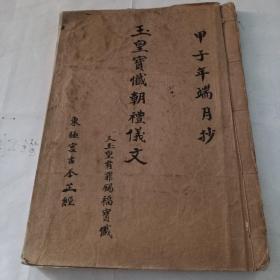 甲子年端月抄
玉皇寶懺朝禮儀文
又玉皇宥罪錫福寶懺
東極宮古本正經